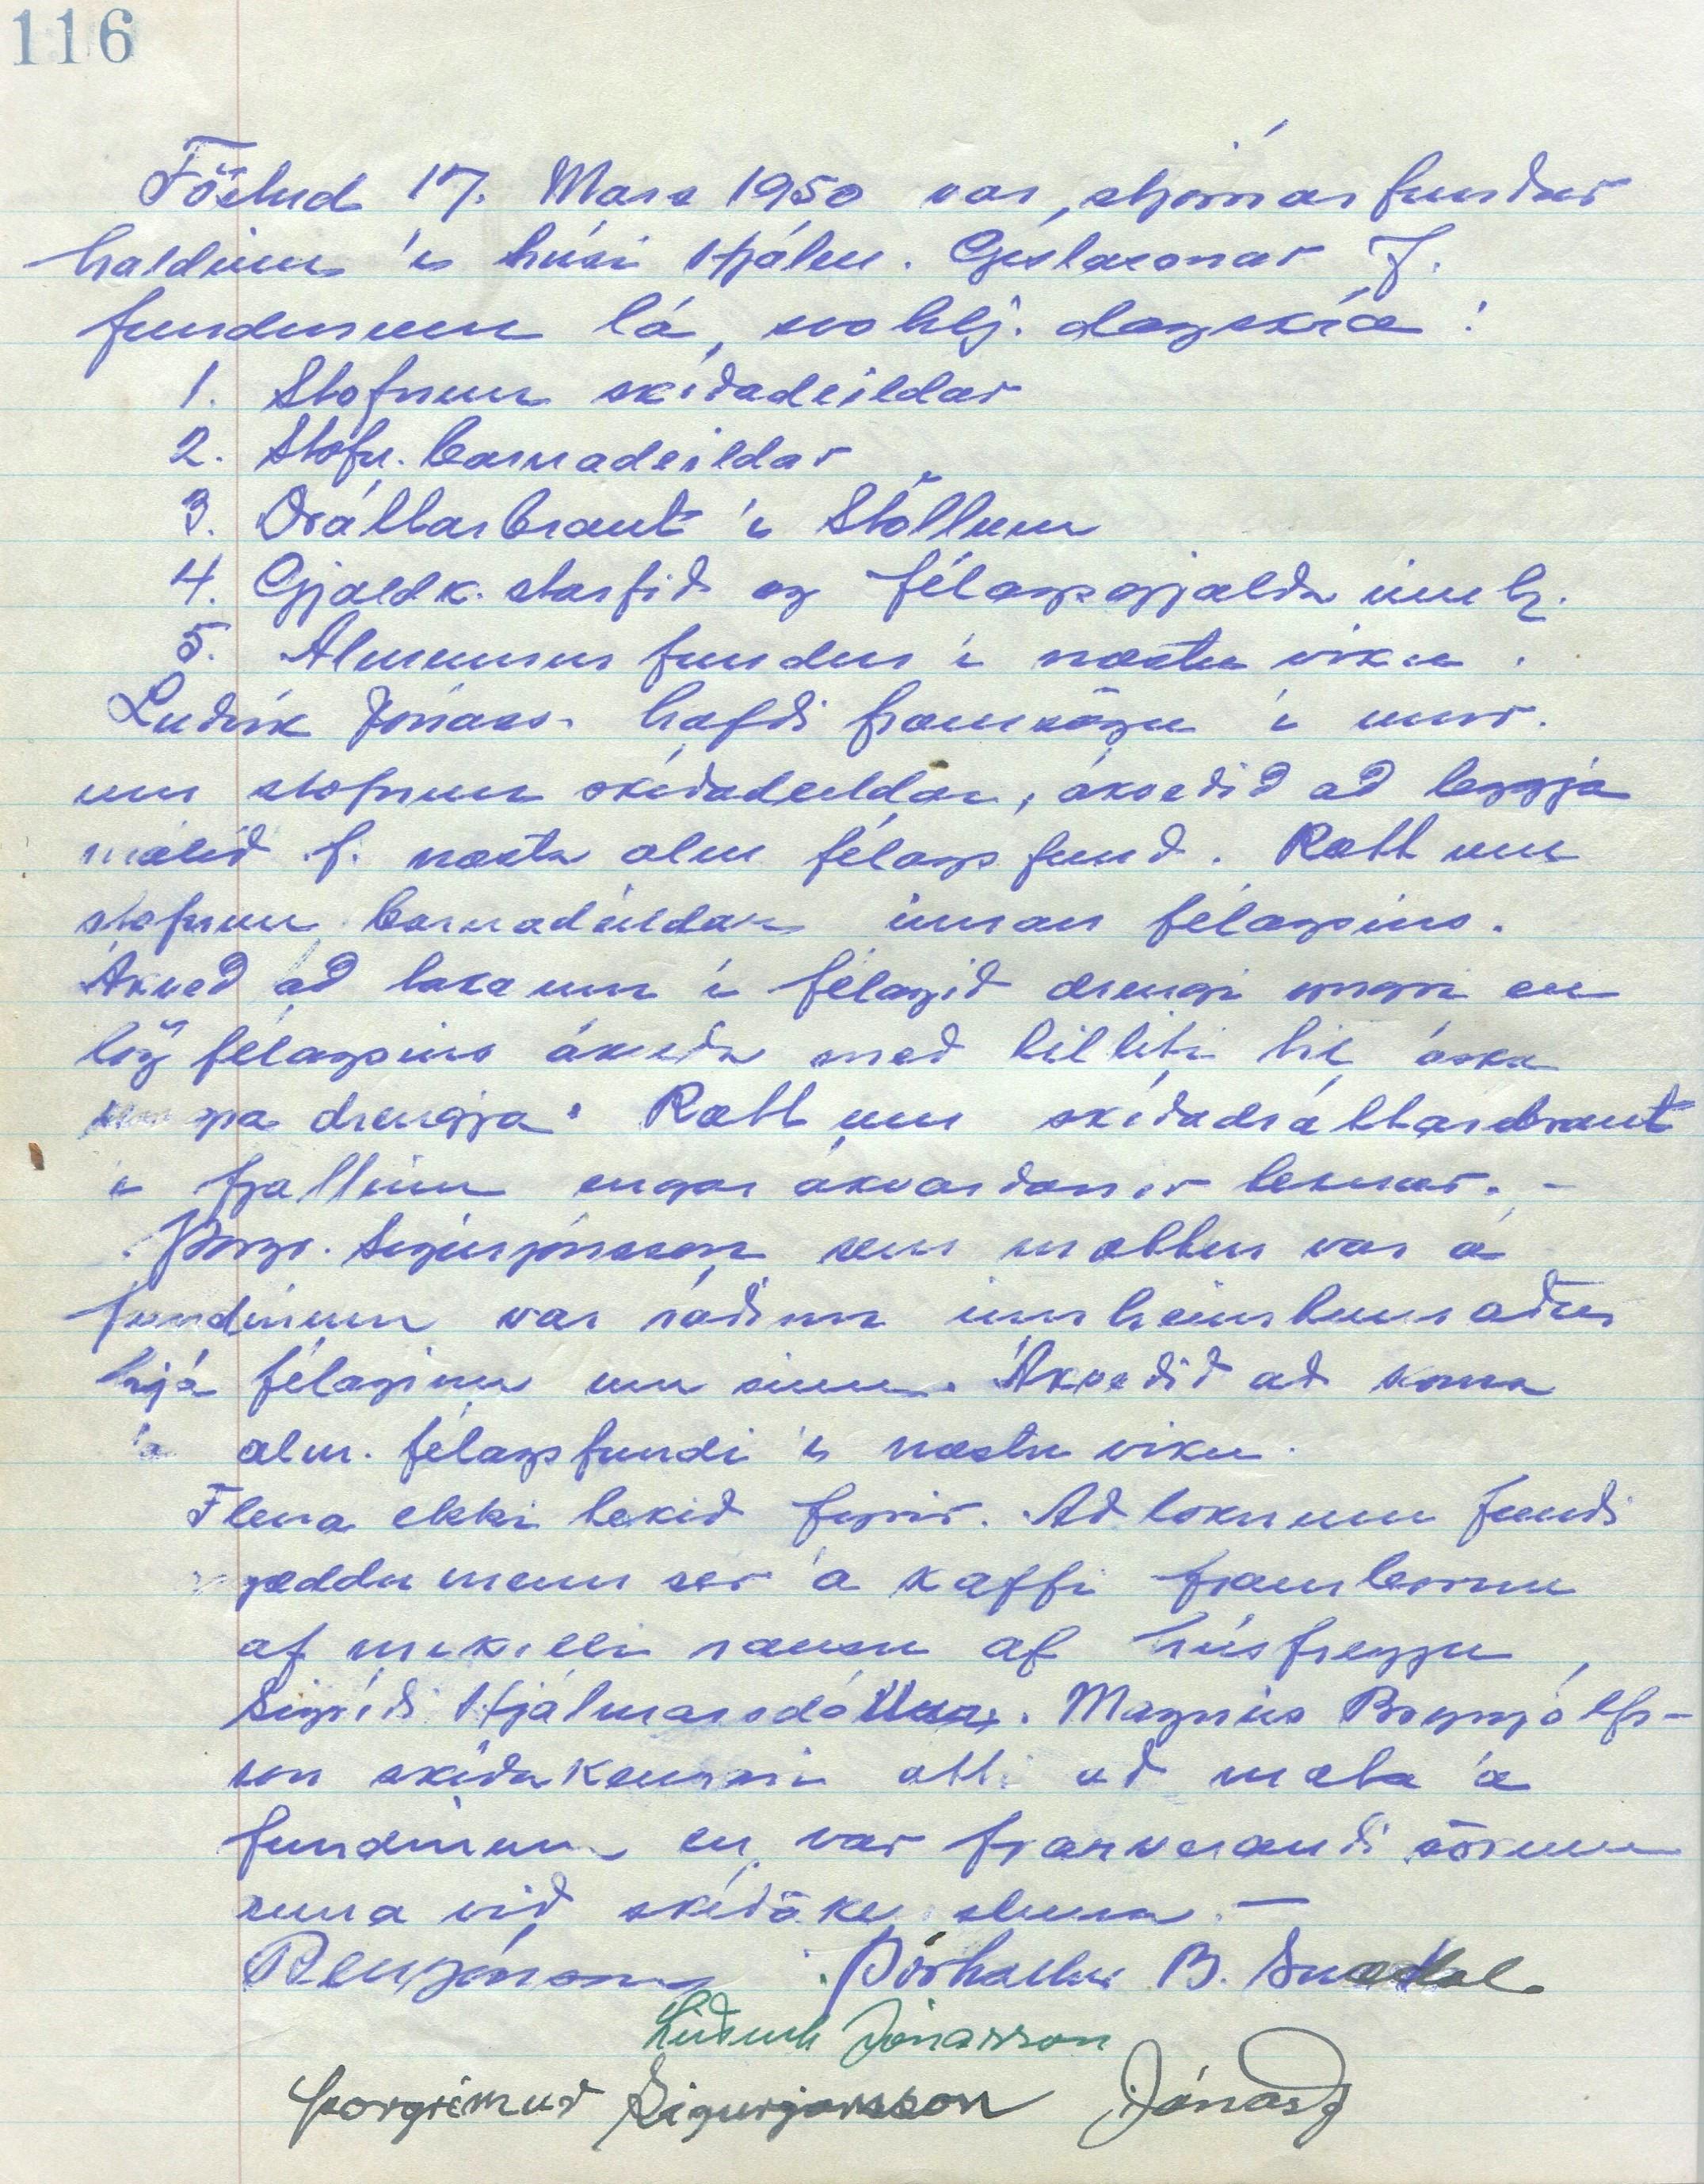 116
Föstud 17. Mars 1950 var stjórnarfundur
haldinn í húsi Hjálm. Gíslasonar F.
fundinum lá svohlj. dagskrá:
1. Stofnun skíðadeildar
2. Stofn. barnadeildar
3. Dráttarbraut í Stöllum
4. Gjaldk. starfið og félagsgjalda innh.
5. Almennur fundur í næstu viku.
Lúðvík Jónass. hafði framsögu í
um stofnun skíðadeildar, ákveðið að leggja
málið f. næsta alm félagsfund. Rætt um
stofnun barnadeildar innan félagsins.
Ákveð að taka inn í félagið drengi yngri en
lög félagsins ákveða með tilliti til óska
yngra drengja. Rætt um skíðadráttarbraut
í fjallinu engar ákvarðanir teknar. -
Þorgr. Sigurjónsson sem mættur var á
fundinum var ráðinn innheimtumaður
hjá félaginu um sinn. Ákveðið að koma
á alm. félagsfundi í næstu viku.
Fleira ekki tekið fyrir. Að loknum fundi
gæddu menn sér á kaffi frambornu
af mikilli rausn af húsfreyju,
Sigríði Hjálmarsdóttur. Magnús Brynjólfs-
son skíðakennari átti að mæta á
fundinum en var fjarverandi sökum
anna við skíðakensluna. —
Þórhallur B. Snædal
Lúðvík Jónasson
Þorgrímur Sigurjónsson Jónas